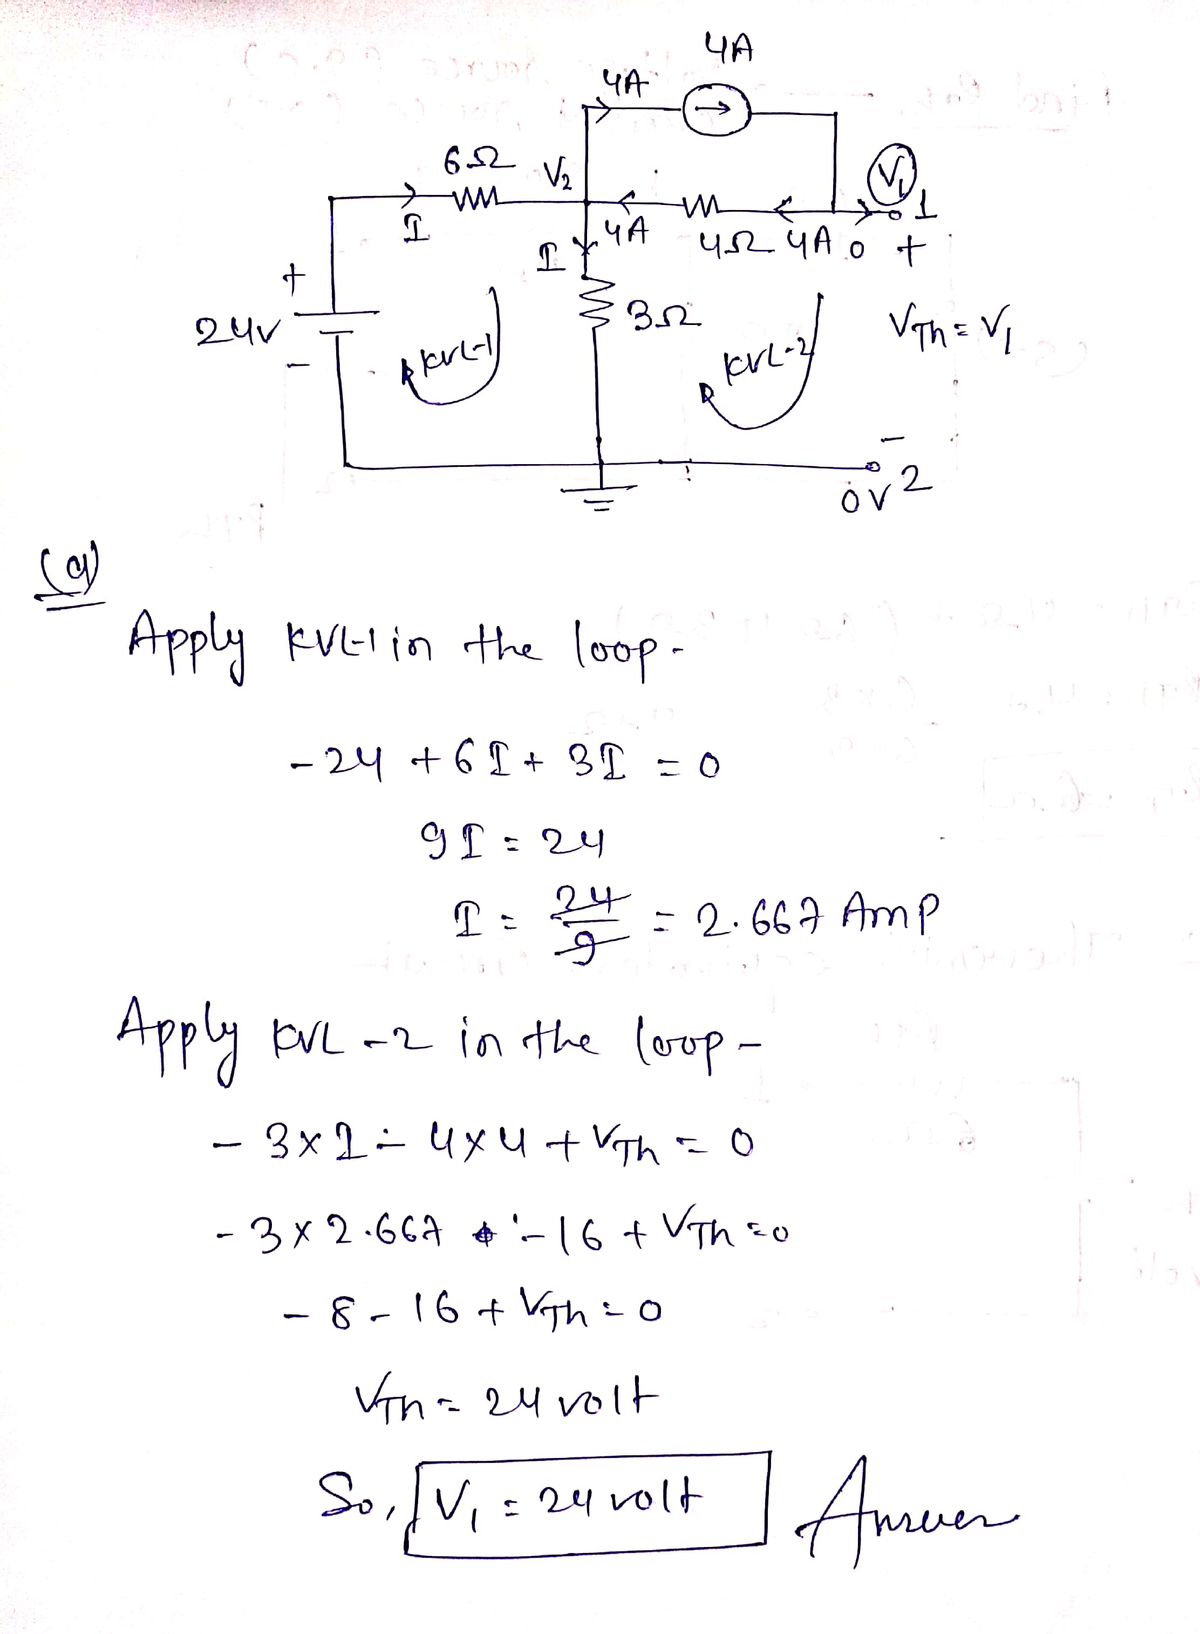 4A
4A
6Ω V₂ V₁ 1
I 4A 4Ω 4A 0 +
I
+
24V 3Ω VTh = V₁
- KVL-1 KVL-2
-
0V 2
(a)
Apply KVL-1 in the loop -
-24 + 6I + 3I = 0
9I = 24
I = 24/9 = 2.667 Amp
Apply KVL-2 in the loop -
- 3×I - 4×4 + VTh = 0
- 3×2.667 - 16 + VTh = 0
- 8 - 16 + VTh = 0
VTh = 24 volt
So, V₁ = 24 volt Answer